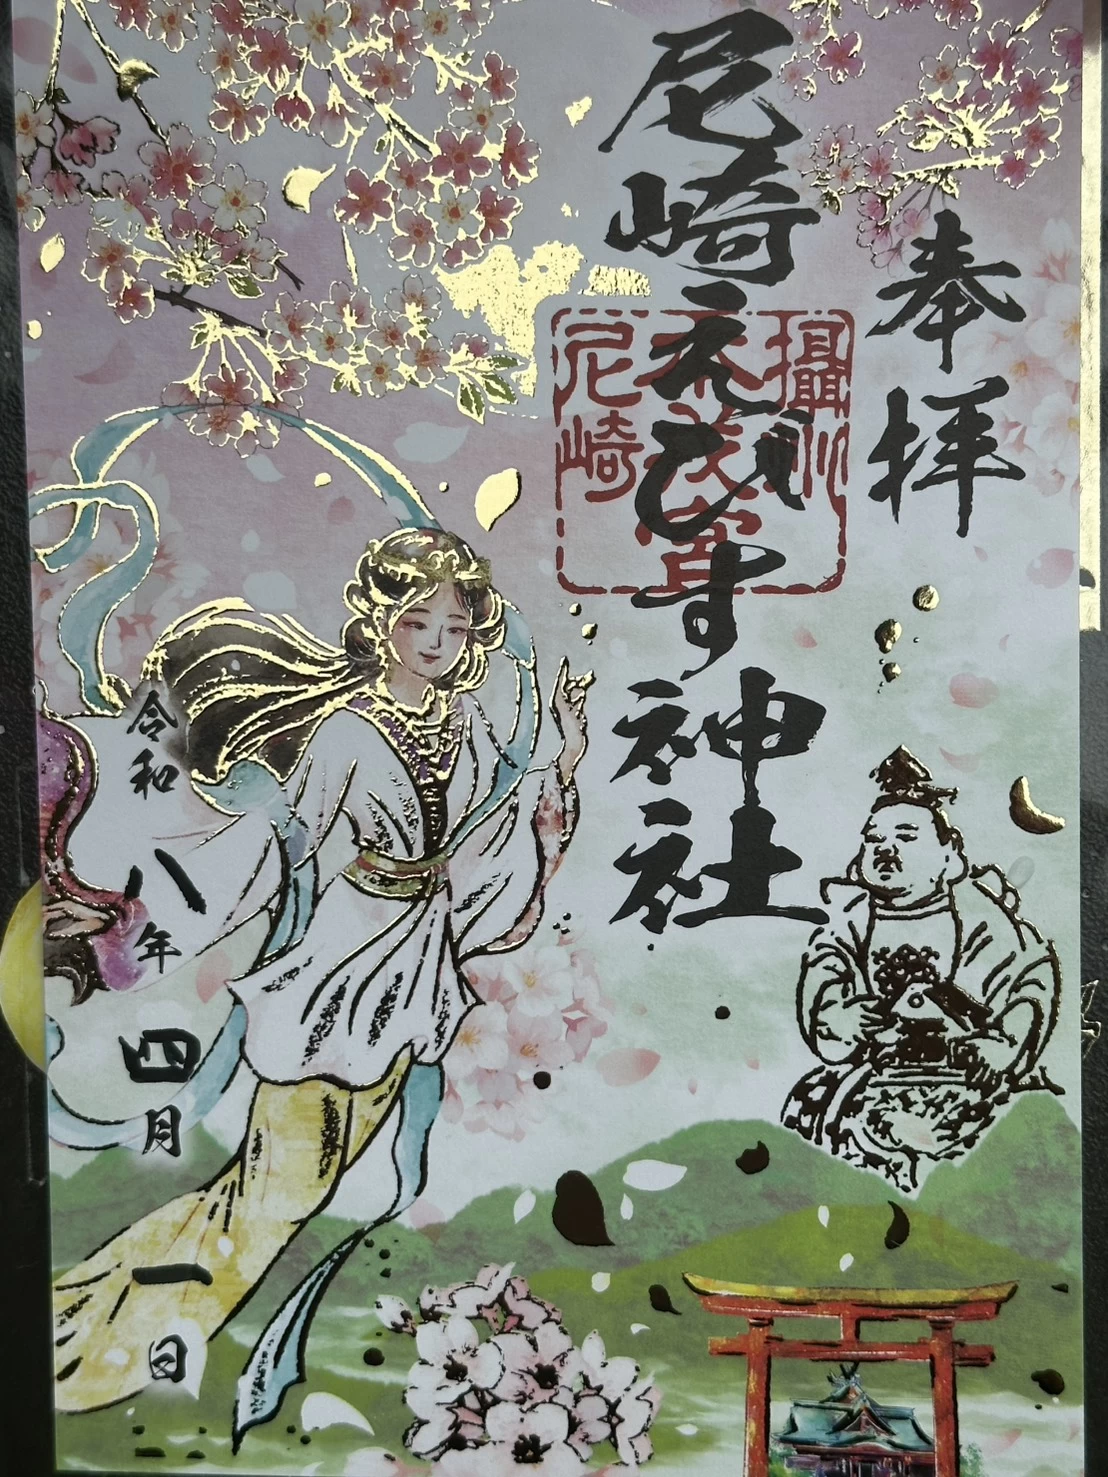 奉拝
尼崎えびす神社
攝州
尼崎
令和八年四月一日